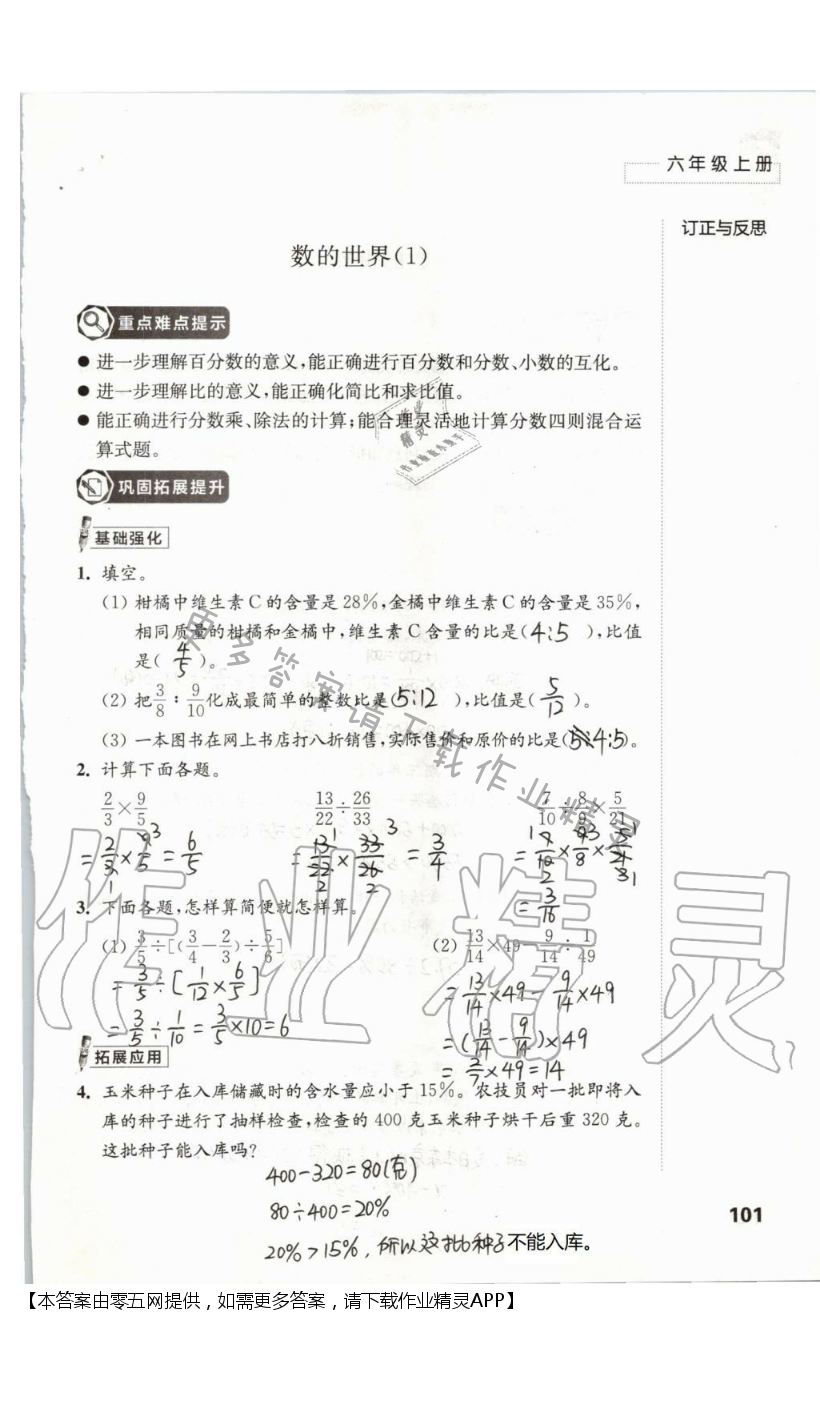 六年级上册
订正与反思
数的世界(1)
重点难点提示
● 进一步理解百分数的意义,能正确进行百分数和分数、小数的互化。
● 进一步理解比的意义,能正确化简比和求比值。
● 能正确进行分数乘、除法的计算;能合理灵活地计算分数四则混合运
算式题。
巩固拓展提升
基础强化
1. 填空。
(1) 柑橘中维生素C的含量是28%,金橘中维生素C的含量是35%,
相同质量的柑橘和金橘中,维生素C含量的比是( 4:5 ),比值
是( 4/5 )。
(2) 把3/8:9/10化成最简单的整数比是( 5:12 ),比值是( 5/12 )。
(3) 一本图书在网上书店打八折销售,实际售价和原价的比是( 4:5 )。
2. 计算下面各题。
2/3×9/5 13/22÷26/33 7/10÷8/9×5/21
=2/3×9/5=6/5 =13/22×33/26=3/4 =7/10×9/8×5/21
=3/16
3. 下面各题,怎样算简便就怎样算。
(1) 3/5÷[(3/4-2/3)÷5/6] (2) 13/14×49-9/14÷1/49
=3/5÷[1/12×6/5] =13/14×49-9/14×49
=3/5÷1/10=3/5×10=6 =(13/14-9/14)×49
=2/7×49=14
拓展应用
4. 玉米种子在入库储藏时的含水量应小于15%。农技员对一批即将入
库的种子进行了抽样检查,检查的400克玉米种子烘干后重320克。
这批种子能入库吗?
400-320=80(克)
80÷400=20%
20%>15%,所以这批种子不能入库。
101
更多答案请下载作业精灵
作业精灵
【本答案由零五网提供,如需更多答案,请下载作业精灵APP】